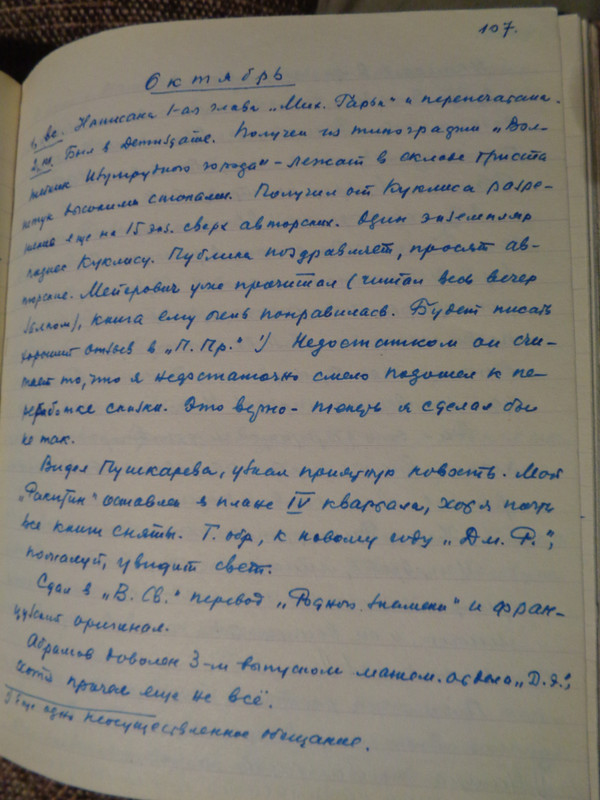 107.
Октябрь
1, вс. Написана 1-ая глава „Мих. Гарта" и перепечатана.
2, пн. Был в Детиздате. Получен из типографии „Вол-
шебник Изумрудного города" - лежат в складе триста
штук высокими стопами. Получил от Куклиса разре-
шение еще на 15 экз. сверх авторских. Один экземпляр
поднес Куклису. Публика поздравляет, просят ав-
торские. Мейерович уже прочитал (читал весь вечер
залпом), книга ему очень понравилась. Будет писать
хороший отзыв в „П. Пр." ¹) Недостатком он счи-
тает то, что я недостаточно смело подошел к пе-
реработке сказки. Это верно - теперь я сделал бы
не так.
Видел Пушкарева, узнал приятную новость. Мой
„Ракитин" оставлен в плане IV квартала, хотя почти
все книги сняты. Т. обр, к новому году „Дм. Р.",
пожалуй, увидит свет.
Сдал в „В. Св." перевод „Родного знамени" и фран-
цузский оригинал.
Абрамов доволен 3-м выпуском матем. отдела „Д. э.",
хотя прочел еще не всё.
¹) Еще одно неосуществленное обещание.